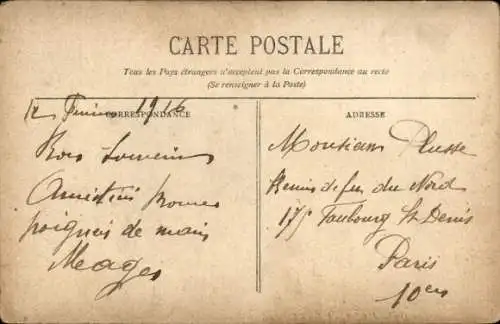 CARTE POSTALE
Tous les Pays étrangers n'acceptent pas la Correspondance au recto
(Se renseigner à la Poste)
12 1916
CORRESPONDANCE
ADRESSE
Bons Souvenirs
Amitiés Bonnes
poignées de main
Meages
Monsieur Plusse
Chemin de fer du Nord
175 Faubourg St Denis
Paris
10em